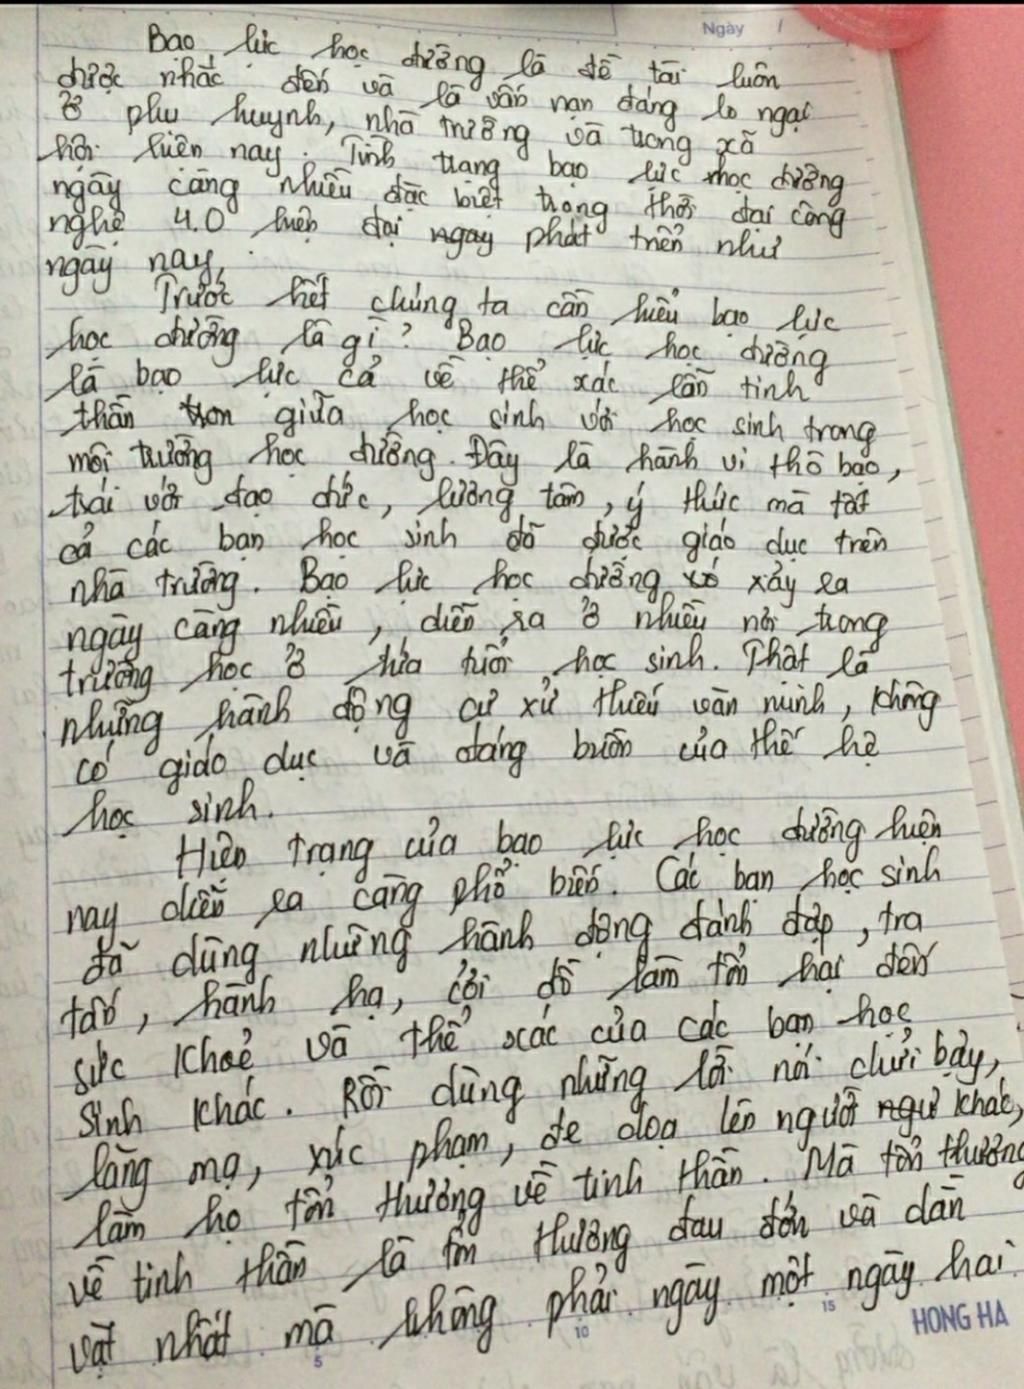 Ngày /
Bạo lực học đường là đề tài luôn
được nhắc đến và là vấn nạn đáng lo ngại
ở phụ huynh, nhà trường và trong xã
hội hiện nay. Tình trạng bạo lực học đường
ngày càng nhiều đặc biệt trong thời đại công
nghệ 4.0 hiện đại ngay phát triển như
ngày nay.
Trước hết chúng ta cần hiểu bạo lực
học đường là gì? Bạo lực học đường
là bạo lực cả về thể xác lẫn tinh
thần giữa học sinh với học sinh trong
môi trường học đường. Đây là hành vi thô bạo,
trái với đạo đức, lương tâm, ý thức mà tất
cả các bạn học sinh đã được giáo dục trên
nhà trường. Bạo lực học đường xảy ra
ngày càng nhiều, diễn ra ở nhiều nơi trong
trường học ở lứa tuổi học sinh. Thật là
những hành động cư xử thiếu văn minh, không
có giáo dục và đáng buồn của thế hệ
học sinh.
Hiện trạng của bạo lực học đường hiện
nay diễn ra càng phổ biến. Các bạn học sinh
đã dùng những hành động đánh đập, tra
tấn, hành hạ, cởi đồ làm tổn hại đến
sức khoẻ và thể xác của các bạn học
sinh khác. Rồi dùng những lời nói chửi bậy,
lăng mạ, xúc phạm, đe doạ lên người khác,
làm họ tổn thương về tinh thần. Mà tổn thương
về tinh thần là tổn thương đau đớn và dằn
vặt nhất mà không phải ngày một ngày hai
5 10 15 HONG HA